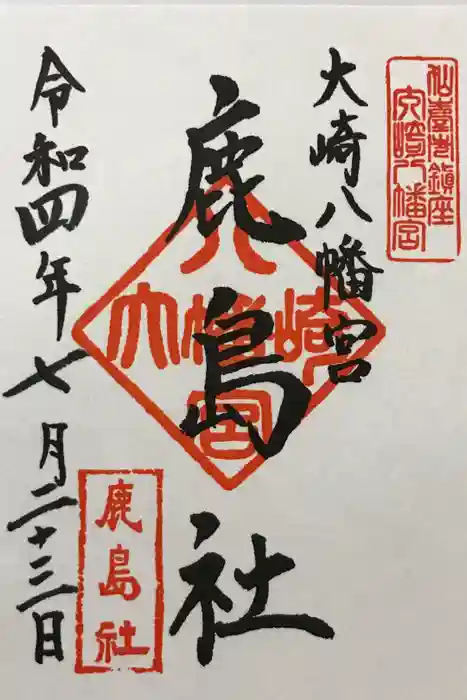 仙臺市鎮座
大崎八幡宮
大崎八幡宮
鹿島社
大崎八幡宮
令和四年七月二十三日
鹿島社